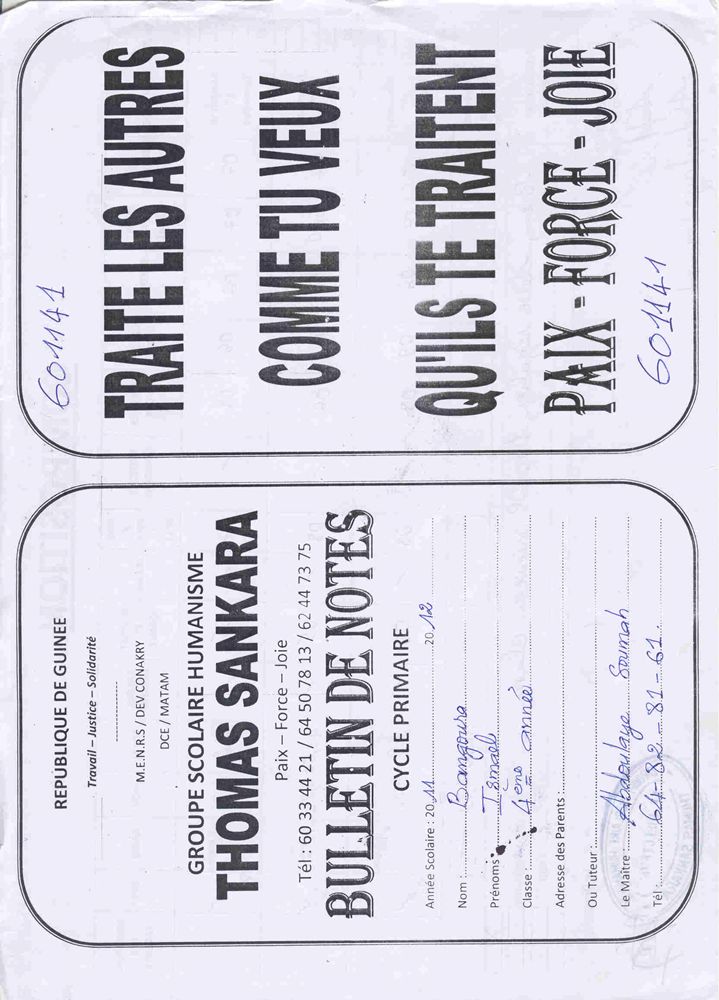 601141
TRAITE LES AUTRES
COMME TU VEUX
QU'ILS TE TRAITENT
PAIX - FORCE - JOIE
601141
REPUBLIQUE DE GUINEE
Travail – Justice – Solidarité
M.E.N.R.S / DEV CONAKRY
DCE / MATAM
GROUPE SCOLAIRE HUMANISME
THOMAS SANKARA
Paix – Force – Joie
Tél : 60 33 44 21 / 64 50 78 13 / 62 44 73 75
BULLETIN DE NOTES
CYCLE PRIMAIRE
Année Scolaire : 2011 2012
Nom : Bangoura
Prénoms : Ismael
Classe : 4ème année
Adresse des Parents :
Ou Tuteur :
Le Maître : Abdoulaye Soumah
Tél : 64-82-81-61